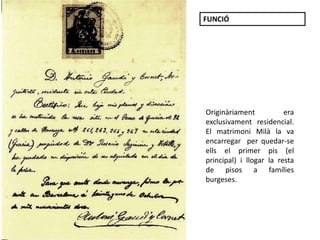 FUNCIÓ
D. Antonio Gaudí y Cornet, Ar-
quitecto, residente en esta Ciudad.
Certifico: Que bajo mis planos y dirección
se ha construido la casa sita en el Paseo de Gracia nº 92
y calles de Provenza nº 261, 263, 265 y 267 en esta ciudad
(Gracia) propiedad de Dª Rosario Segimon y
ha quedado en disposición de ser en el día de
la fecha.
Para que conste donde convenga, firmo la pre-
sente en Barcelona á de Octubre
de mil novecientos doce.
Antonio Gaudí y Cornet
Originàriament era
exclusivament residencial.
El matrimoni Milà la va
encarregar per quedar-se
ells el primer pis (el
principal) i llogar la resta
de pisos a famílies
burgeses.